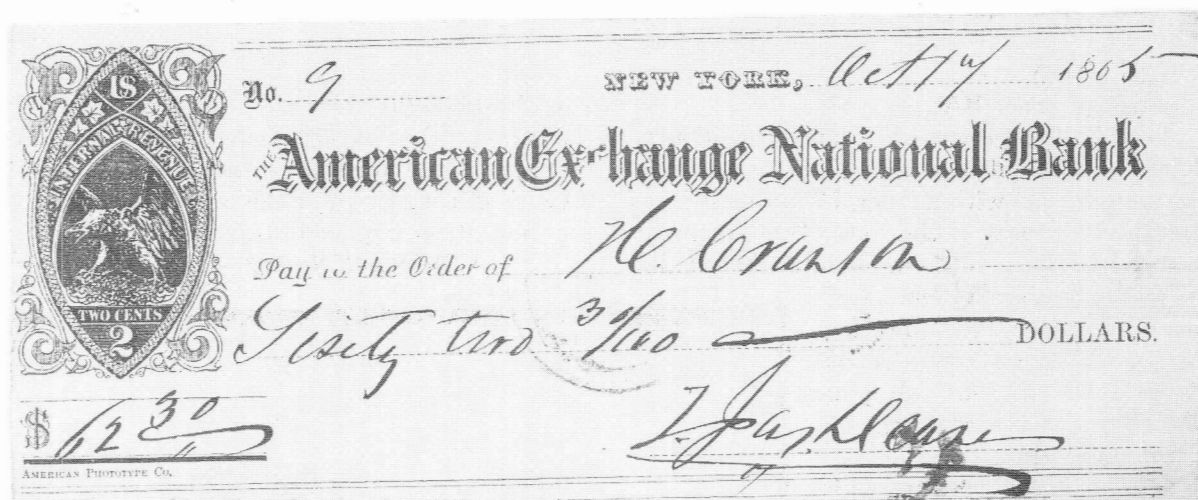 U.S.
INTERNAL REVENUE
TWO CENTS
2
No. 9 NEW YORK, Oct 17 1865
THE American Exchange National Bank
Pay to the Order of H. Cranston
Sixty two 30/100 DOLLARS.
$ 62 30
AMERICAN PHOTOTYPE CO.